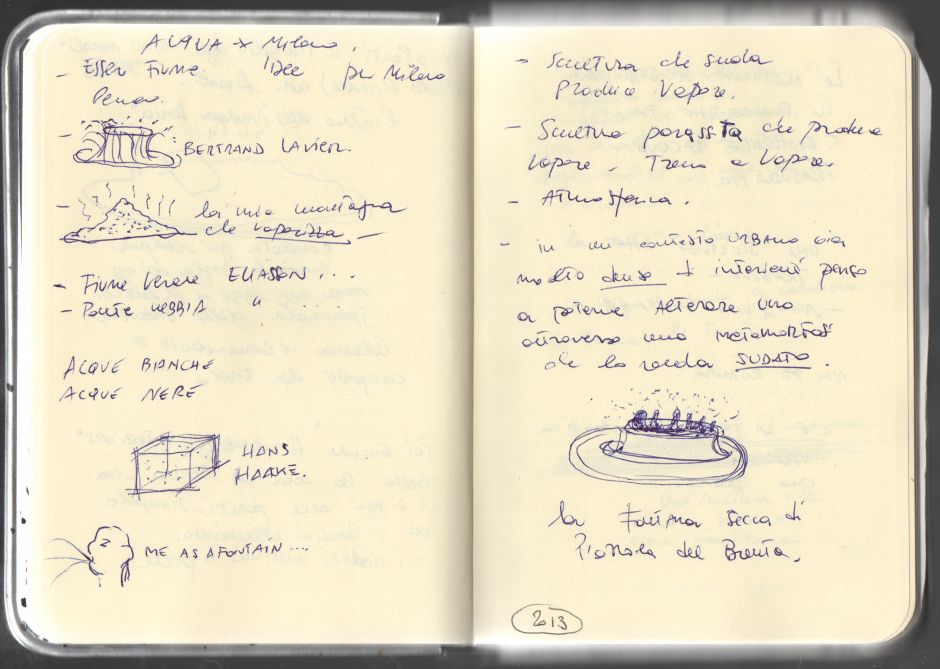 ACQUA x Milano.
- ESSER FIUME Idee per Milano
Penone.
- BERTRAND LAVIER.
- la mia montagna
che vaporizza -
- Fiume Verde ELIASSON...
- Ponte NEBBIA "
ACQUE BIANCHE
ACQUE NERE
HANS
HAAKE.
ME AS A FONTAIN...
- Scultura che suda
Produce Vapore.
- Scultura parassita che produce
vapore - Treno a Vapore.
- Atmosferica.
- in un contesto URBANO già
molto denso di interventi penso
a poterne Alterare uno
attraverso una METAMORFOSI
che lo renda SUDATO.
la Fontana secca di
Piazzola del Brenta.
213